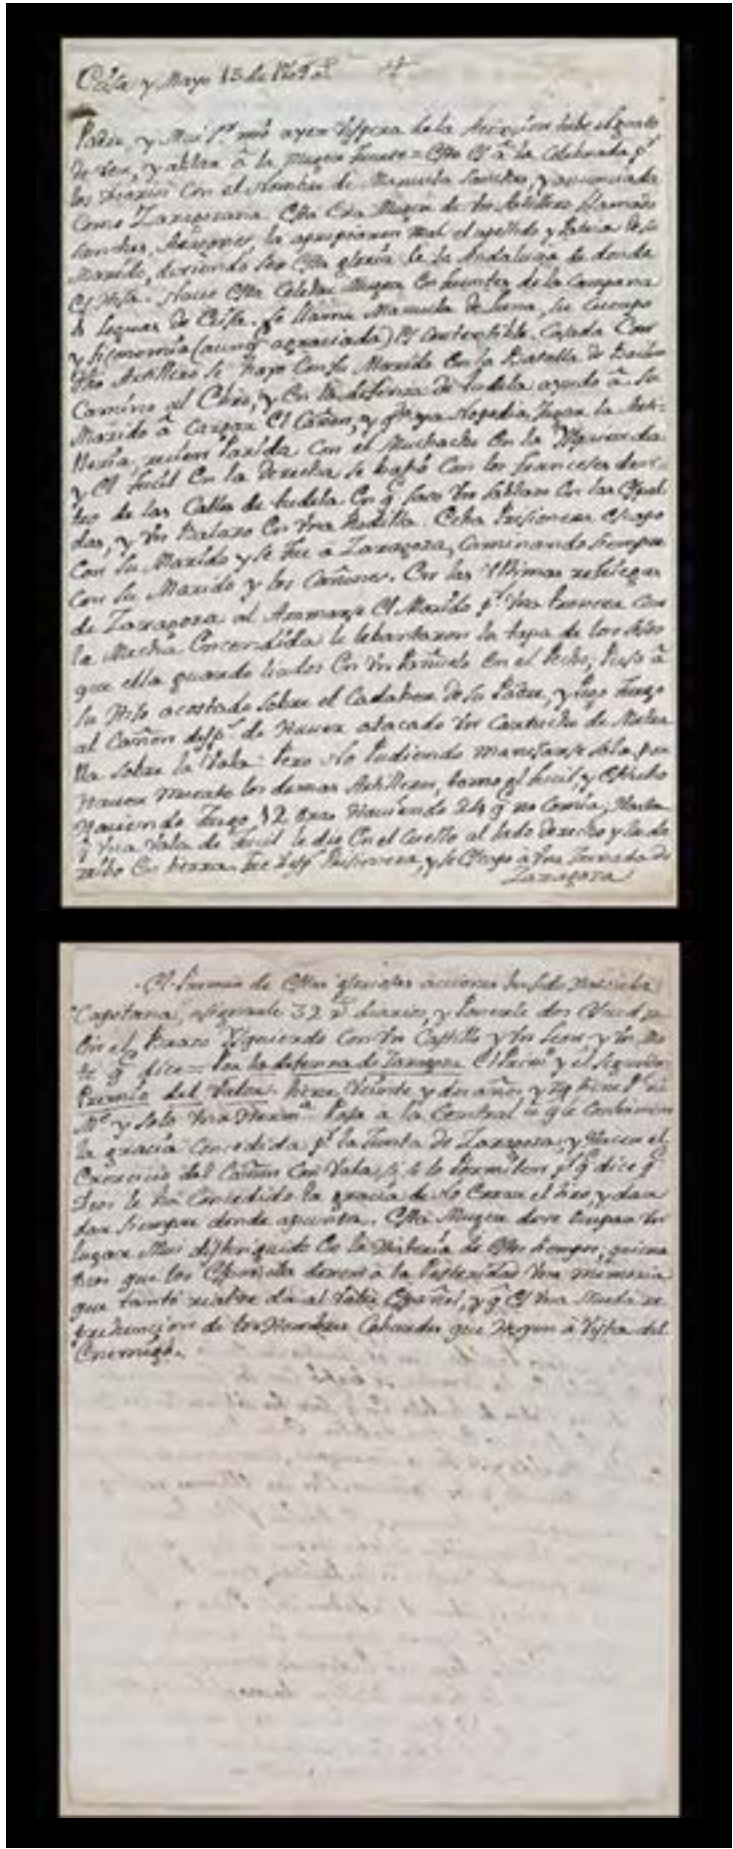 y Mayo 13 de 1809 +
Padre, y Mui Sr mio ayer Vispera de la tube el gusto
de ver, y ablar â la Muger fuerte = Esta Es â la Celebrada pr
los Diarios con el Nombre de Manuela Sanchez, y anunciada
Como Zaragozana. Esta Era Muger de Un Artillero llamado
Sanchez, la apropiaron mal el apellido y Patria de su
Marido, diciendo ser Esta gloria de la Andalucia de donde
Es Nace Esta Celebre Muger En fuentes de la Campana
leguas de Se llama Manuela de Luna, su Cuerpo
y fisonomia (aunq agraciada) Es Contentible. Casada Con
dho Artillero se hayo Con su Marido En la Batalla de Bailen
Camino al Ebro, y En la defensa de tudela ayudo â su
Marido â Cargar El Cañon, y qe ya No podia Jugar la Arti-
lleria, recien Parida Con el Muchacho En la Yzquierda
y El fusil En la derecha se batio Con los franceses den-
tro de las Calles de tudela En q saco Un Sablazo En las Espal-
das, y Un Balazo En Una Rodilla. Echa Prisionera Escapo
Con su Marido y se fue a Zaragoza, Caminando siempre
Con su Marido y los Cañones. En las Ultimas refriegas
de Zaragoza al Arrimarse El Marido pa Una Con
la Mecha Encendida le lebantaron la tapa de los Sesos
que ella guardo liados En Un Pañuelo En el Pecho; Puso â
su Hijo acostado sobre el Cadaber de su Padre, y Pego fuego
al Cañon desps de Haver atacado Un Cartucho de Metra
lla sobre la Vala: Pero No Pudiendo Manejarse sola por
Haver Muerto los demas Artilleros, tomo el fusil y Estubo
Haciendo fuego 12 Oras Haciendo 24 q no Comia, Hasta
q Una Vala de fusil le dio En el Cuello al lado derecho y la de
rribo En tierra. Fue Prisionera, y se Escapo a Una Jornada de
Zaragoza
El Premio de Estas gloriosas acciones ha sido Hacerla
Capitana, asignarle 32 rs diarios, y Ponerle dos Escudos
En el Brazo Yzquierdo Con Un Castillo y Un Leon y Un Mo
te q dice = Por la defensa de Zaragoza El Primo y el segundo
Premio del Valor. tiene Veinte y dos años y no tiene Pe ni
Me y solo Una Hermna. Pasa a la Central a q le Confirmen
la gracia Concedida pr la Junta de Zaragoza, y Hacer el
Exercicio del Cañon Con Vala, si se lo Permiten, pr q dice q
Dios le ha Concedido la gracia de No Errar el tiro, y dan
dar siempre donde apunta. Esta Muger deve Ocupar Un
lugar Mui distinguido En la Historia de Estos tiempos,
que los Españoles deven a la Posteridad Una Memoria
que tanto realze da al Valor Español, y q Es Una Muda re
prehencion de los Hombres Cobardes que Huyen a Vista del
Enemigo.